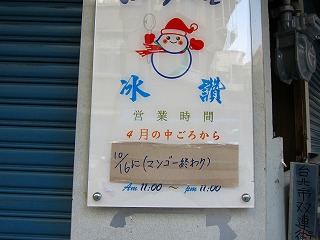 冰 讚
営業時間
4月の中ごろから
10/16に(マンゴー終わり)
Am 11:00 ～ pm 11:00
台北市双連街